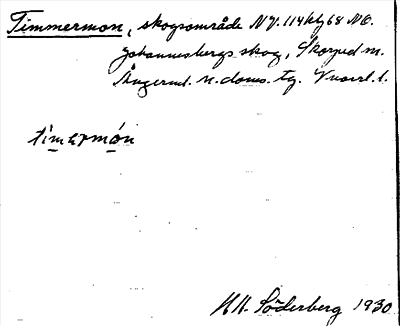 Timmermon, skogsområde NV. 114 kbf 68 NE.
Johannesbergs skog, Skorped sn.
Ångerml. n. doms. tg.
timermón
H.H. Söderberg 1930